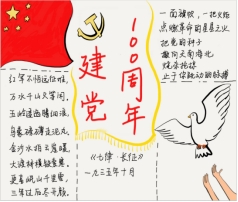 100周年
建党
红军不怕远征难,
万水千山只等闲。
五岭逶迤腾细浪,
乌蒙磅礴走泥丸。
金沙水拍云崖暖,
大渡桥横铁索寒。
更喜岷山千里雪,
三军过后尽开颜。
《七律·长征》
一九三五年十月
一面旗帜,一把火焰
点燃革命的星星之火
把党的种子
撒向天南海北